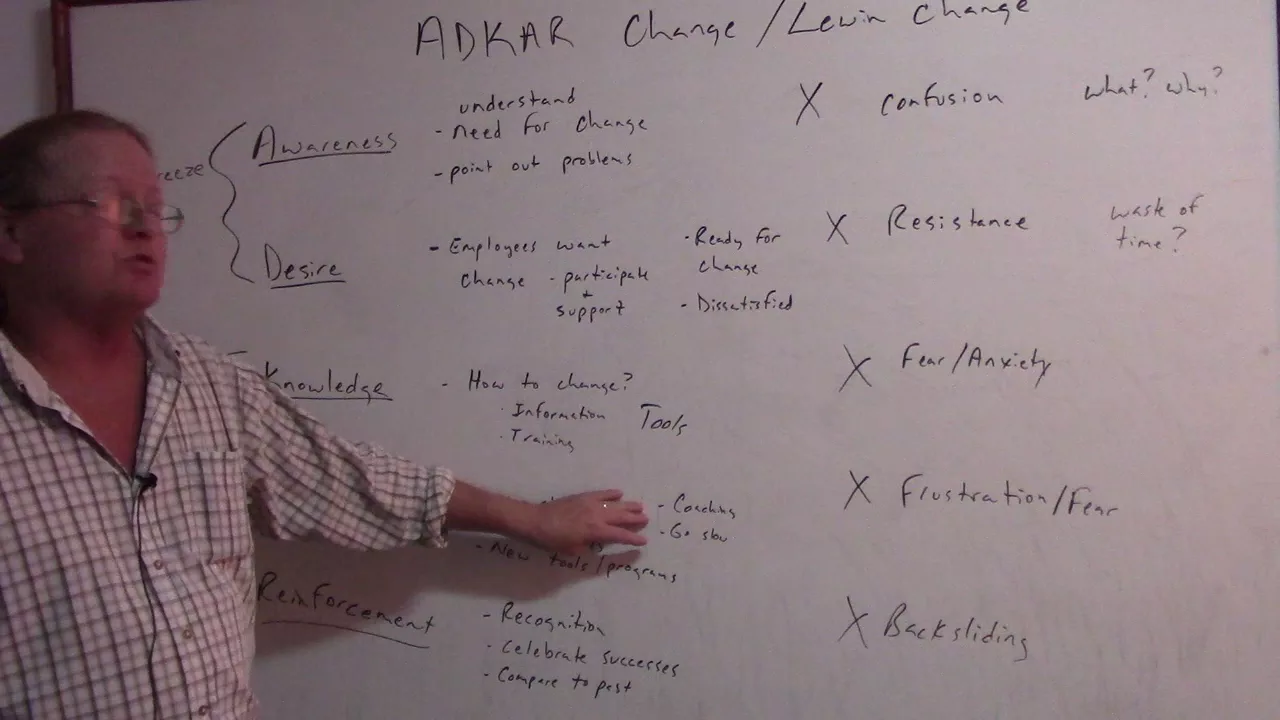 ADKAR Change / Lewin Change
understand
Awareness - need for change
- point out problems
X Confusion what? why?
Desire - Employees want
change - participate
+
support
- Ready for
change
- Dissatisfied
X Resistance
time?
Knowledge - How to change?
· Information
· Training
Tools
X Fear/Anxiety
- Coaching
- Go slow
- New tools/programs
X Frustration/Fear
Reinforcement - Recognition
- Celebrate successes
- Compare to past
X Backsliding